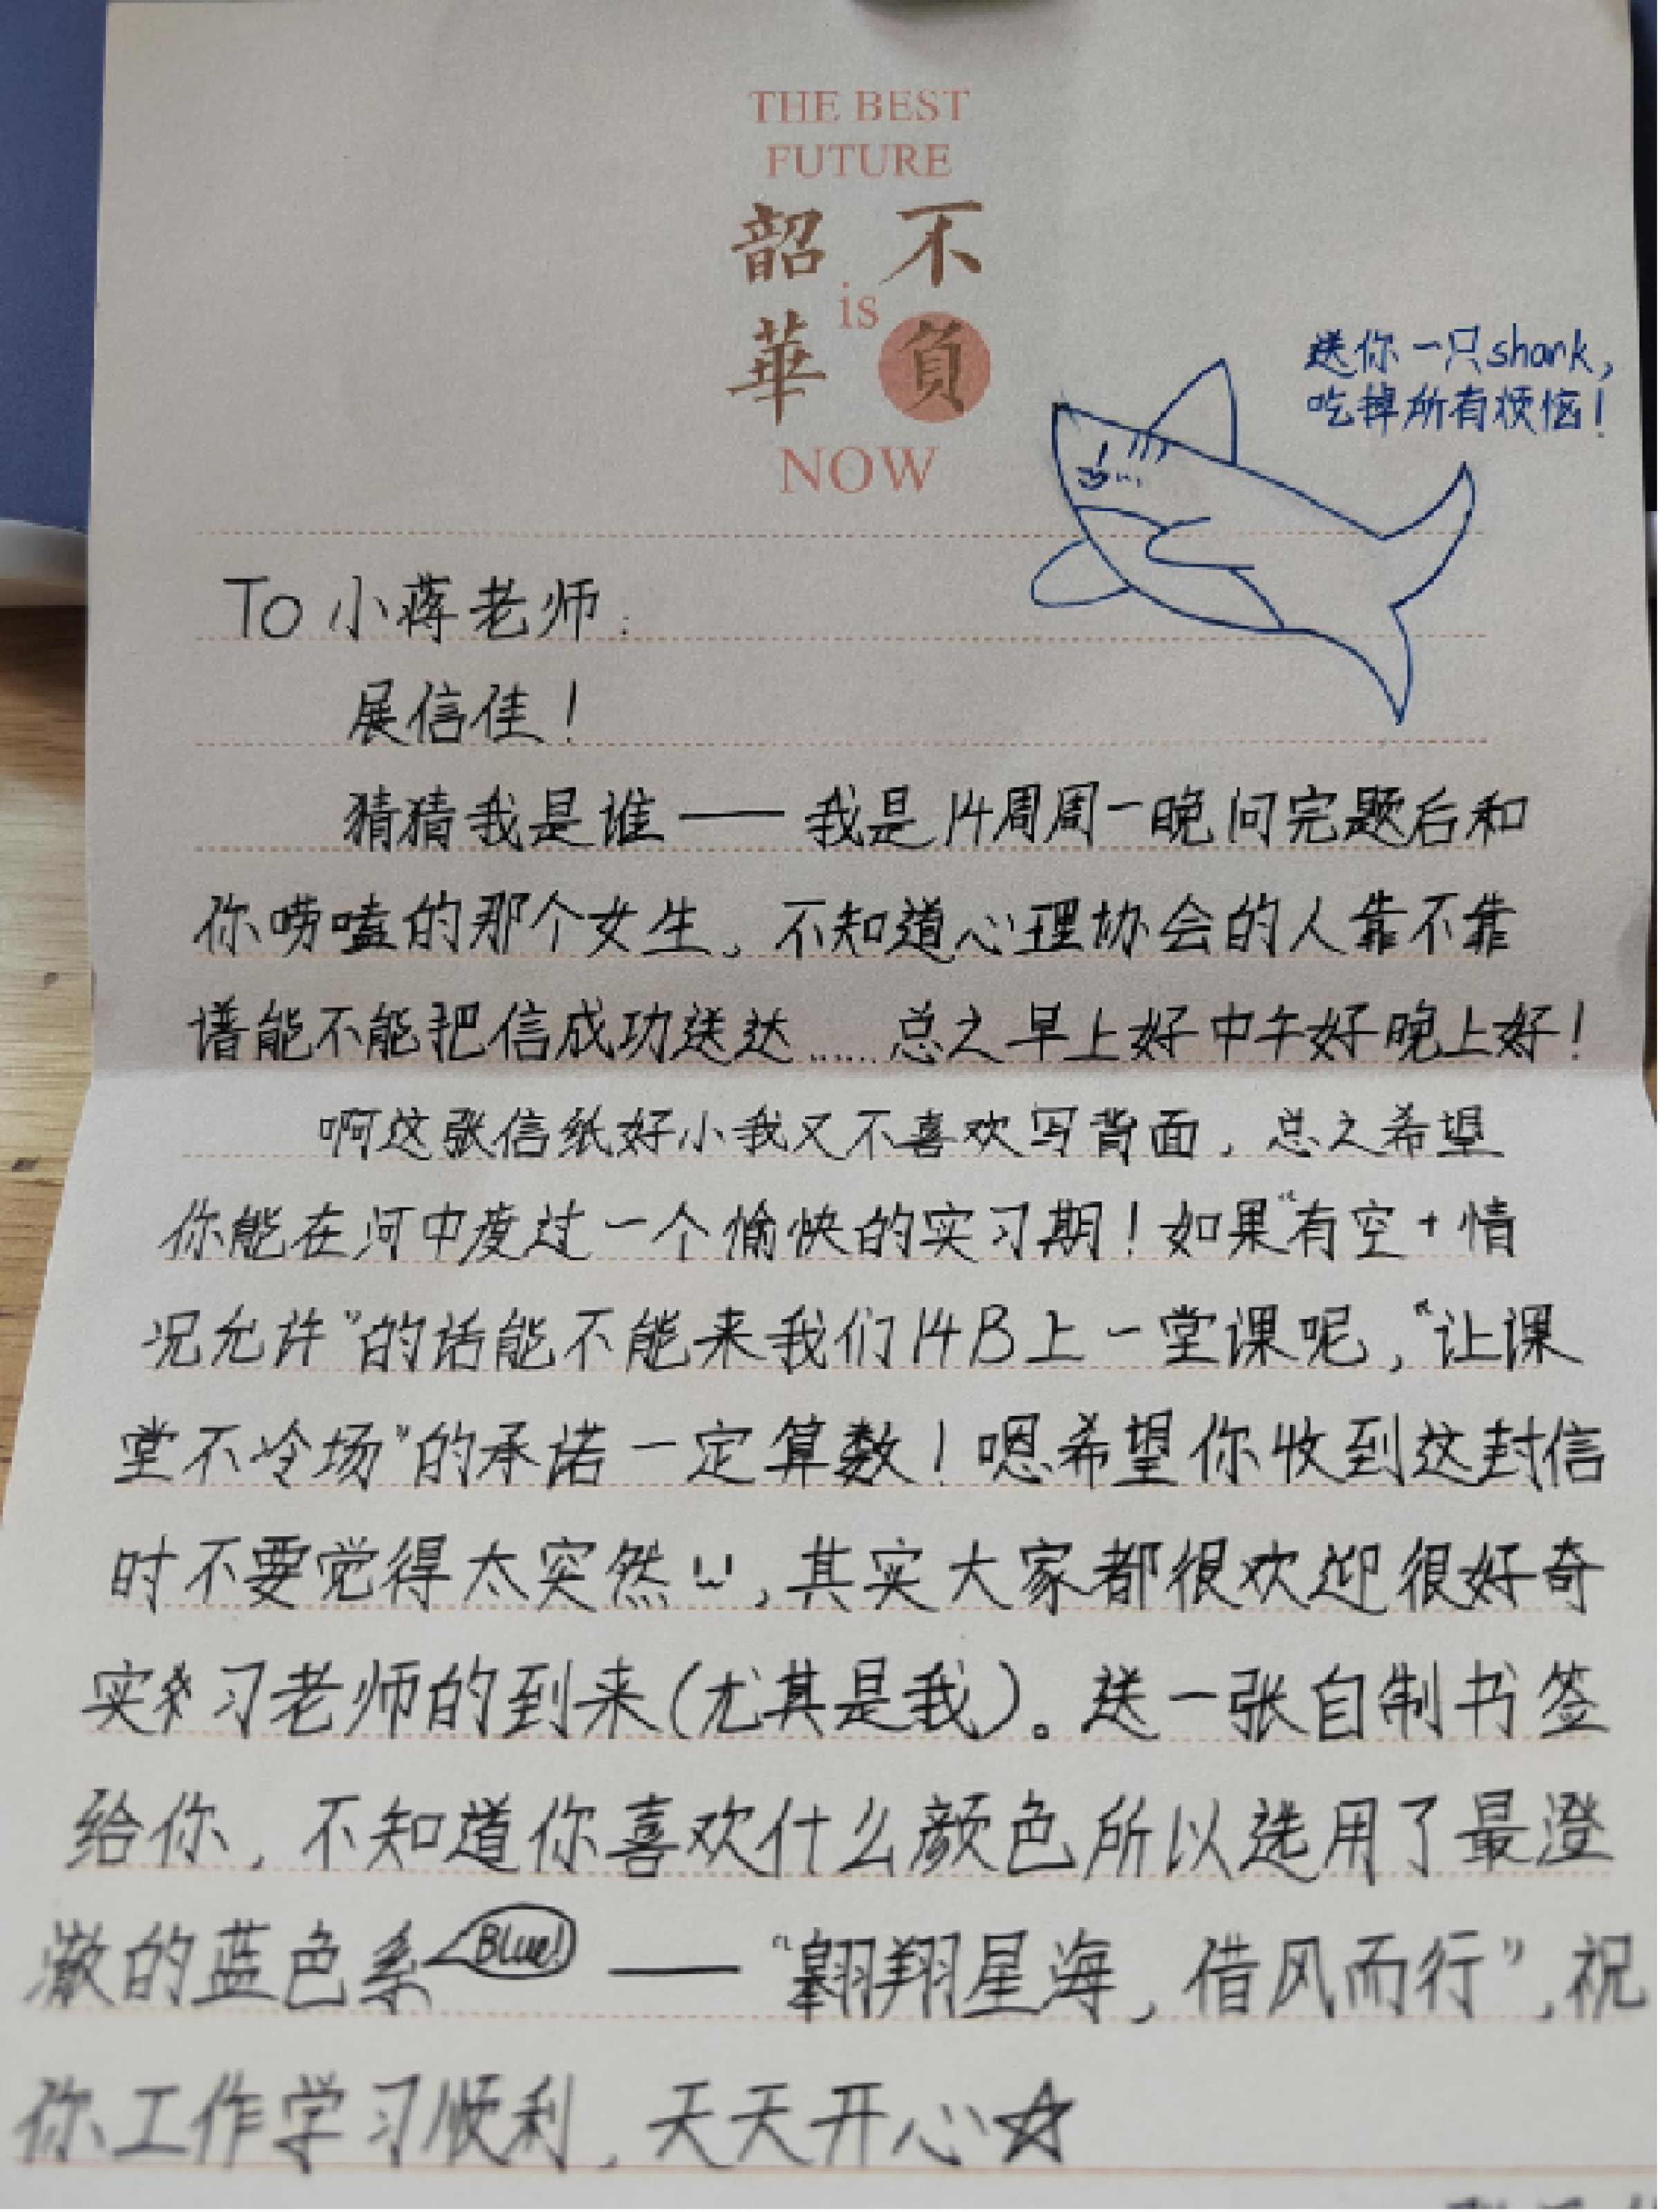 THE BEST
FUTURE
韶 不
is
華 負
NOW
送你一只shark,
吃掉所有烦恼!
To 小蒋老师:
展信佳!
猜猜我是谁——我是14周周一晚问完题后和
你唠嗑的那个女生。不知道心理协会的人靠不靠
谱能不能把信成功送达……总之早上好中午好晚上好!
啊这张信纸好小我又不喜欢写背面,总之希望
你能在河中度过一个愉快的实习期!如果“有空+情
况允许”的话能不能来我们14B上一堂课呢,“让课
堂不冷场”的承诺一定算数!嗯希望你收到这封信
时不要觉得太突然,其实大家都很欢迎很好奇
实习老师的到来(尤其是我)。送一张自制书签
给你,不知道你喜欢什么颜色所以选用了最澄
澈的蓝色系 Blue! ——“翱翔星海,借风而行”,祝
你工作学习顺利,天天开心☆